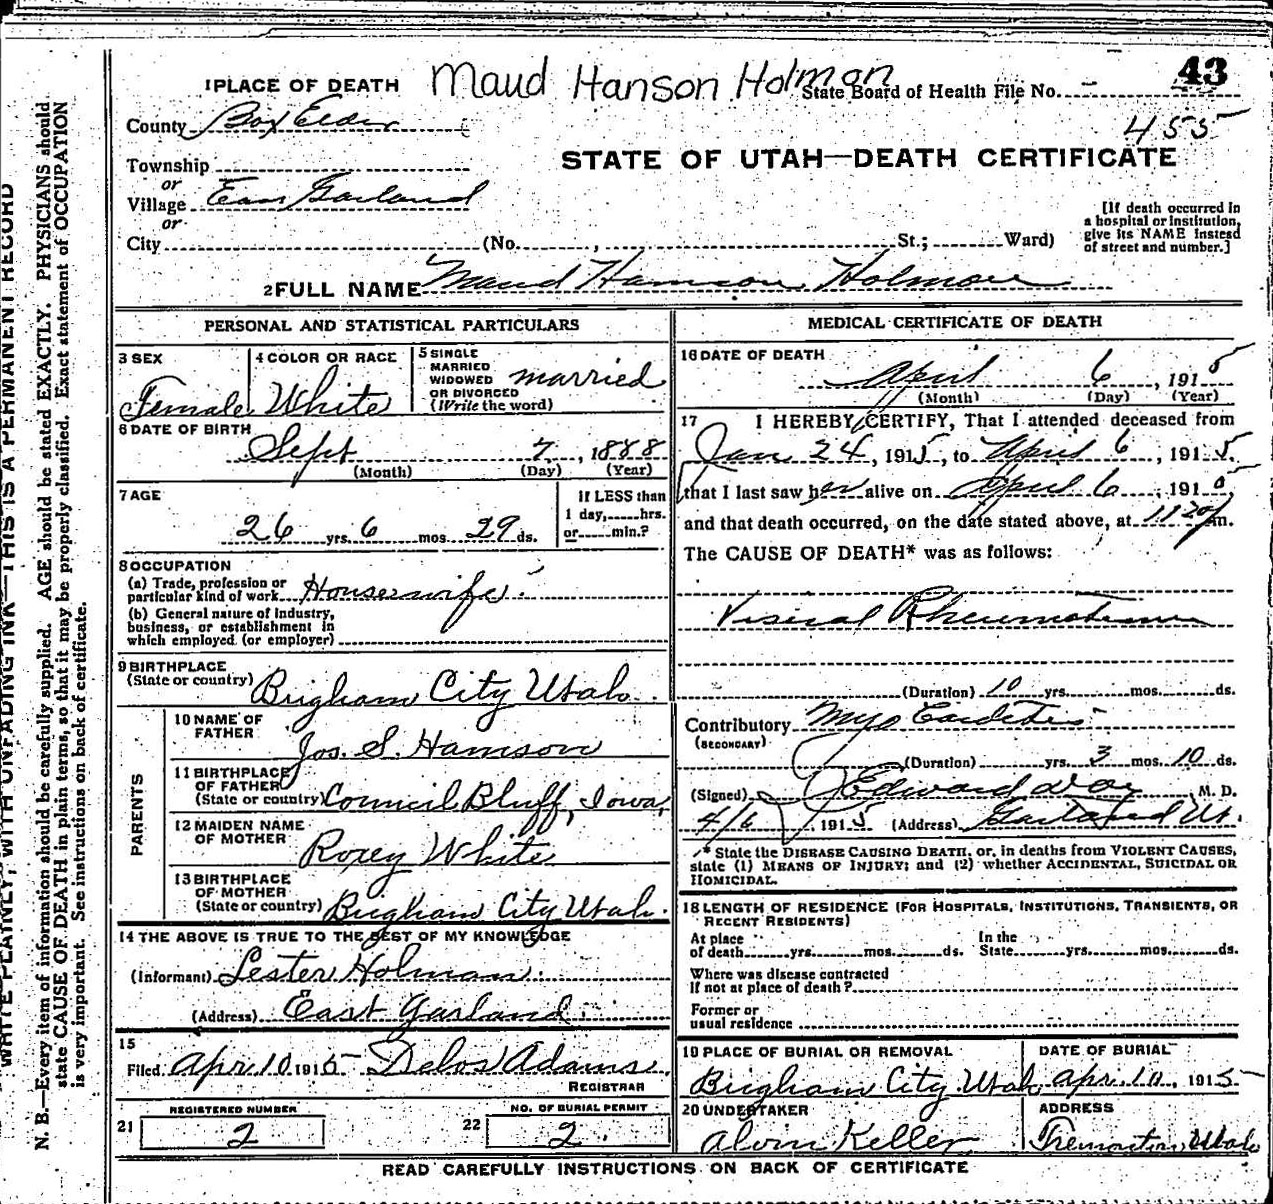 43
1 PLACE OF DEATH Maud Hanson Holman
State Board of Health File No. -
455
County Box Elder
STATE OF UTAH—DEATH CERTIFICATE
Township
or
Village East Garland
or
City (No. , St.; Ward)
[If death occurred in
a hospital or institution,
give its NAME instead
of street and number.]
2 FULL NAME Maud Hanson Holman
PERSONAL AND STATISTICAL PARTICULARS
3 SEX
Female
4 COLOR OR RACE
White
5 SINGLE
MARRIED
WIDOWED
OR DIVORCED
(Write the word)
married
6 DATE OF BIRTH
Sept 7, 1888
(Month) (Day) (Year)
7 AGE
26 yrs. 6 mos. 29 ds.
If LESS than
1 day, hrs.
or min.?
8 OCCUPATION
(a) Trade, profession or
particular kind of work Housewife
(b) General nature of industry,
business, or establishment in
which employed (or employer)
9 BIRTHPLACE
(State or country) Brigham City Utah.
PARENTS
10 NAME OF
FATHER
Jos. S. Hanson
11 BIRTHPLACE
OF FATHER
(State or country) Council Bluff, Iowa,
12 MAIDEN NAME
OF MOTHER
Roxey White
13 BIRTHPLACE
OF MOTHER
(State or country) Brigham City Utah.
14 THE ABOVE IS TRUE TO THE BEST OF MY KNOWLEDGE
(Informant) Lester Holman.
(Address) East Garland
15
Filed Apr 10 1915 Delos Adams.
REGISTRAR
REGISTERED NUMBER
21 2
NO. OF BURIAL PERMIT
22 2
MEDICAL CERTIFICATE OF DEATH
16 DATE OF DEATH
April 6, 1915
(Month) (Day) (Year)
17 I HEREBY CERTIFY, That I attended deceased from
Jan 24, 1915, to April 6, 1915.
that I last saw her alive on April 6, 1915
and that death occurred, on the date stated above, at 1120 m.
The CAUSE OF DEATH* was as follows:
Visiral Rheumatism
(Duration) 10 yrs. mos. ds.
Contributory Myo Carditis
(SECONDARY)
(Duration) yrs. 3 mos. 10 ds.
(Signed) Edward M. D.
4/6 1915 (Address) Garland Ut.
* State the DISEASE CAUSING DEATH, or, in deaths from VIOLENT CAUSES,
state (1) MEANS OF INJURY; and (2) whether ACCIDENTAL, SUICIDAL OR
HOMICIDAL.
18 LENGTH OF RESIDENCE (FOR HOSPITALS, INSTITUTIONS, TRANSIENTS, OR
RECENT RESIDENTS)
At place
of death yrs. mos. ds.
In the
State yrs. mos. ds.
Where was disease contracted
If not at place of death?
Former or
usual residence
19 PLACE OF BURIAL OR REMOVAL
Brigham City Utah
DATE OF BURIAL
Apr. 10, 1915
20 UNDERTAKER
Alvin Keller
ADDRESS
Tremonton, Utah
READ CAREFULLY INSTRUCTIONS ON BACK OF CERTIFICATE
WRITE PLAINLY, WITH UNFADING INK—THIS IS A PERMANENT RECORD
N. B.—Every item of information should be carefully supplied. AGE should be stated EXACTLY. PHYSICIANS should
state CAUSE OF DEATH in plain terms, so that it may be properly classified. Exact statement of OCCUPATION
is very important. See instructions on back of certificate.